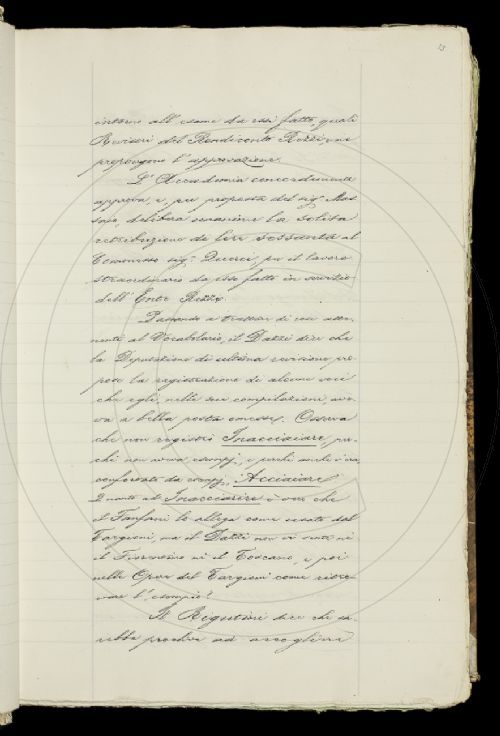 23
intorno all'esame da essi fatto, quali
Revisori del Rendiconto Rezzi, ne
propongono l'approvazione.
L'Accademia concordemente
approva, e, per proposta del sig.
delibera unanime la solita
retribuzione di lire sessanta al
sig. per il lavoro
straordinario da esso fatto in servizio
dell'Ente Rezzi.
Passando a trattar di cose atti-
nenti al Vocabolario, il Dazzi dice che
la Deputazione di ultima revisione pro-
pose la registrazione di alcune voci
che egli, nella sua compilazione, ave-
va a bella posta omesse. Osserva
che non registrò Inacciaiare, per-
ché non aveva esempj, e perché anch'è
confortata da esempj, Acciaiare.
Quanto ad Inacciarire è vero che
il Fanfani lo allega come usato dal
Targioni, ma il Dazzi non vi sente né
il Fiorentino né il Toscano, e poi
nelle Opere del Targioni come ritro-
vare l'esempio?
Il Rigutini dice che sa-
rebbe proclive ad accogliere